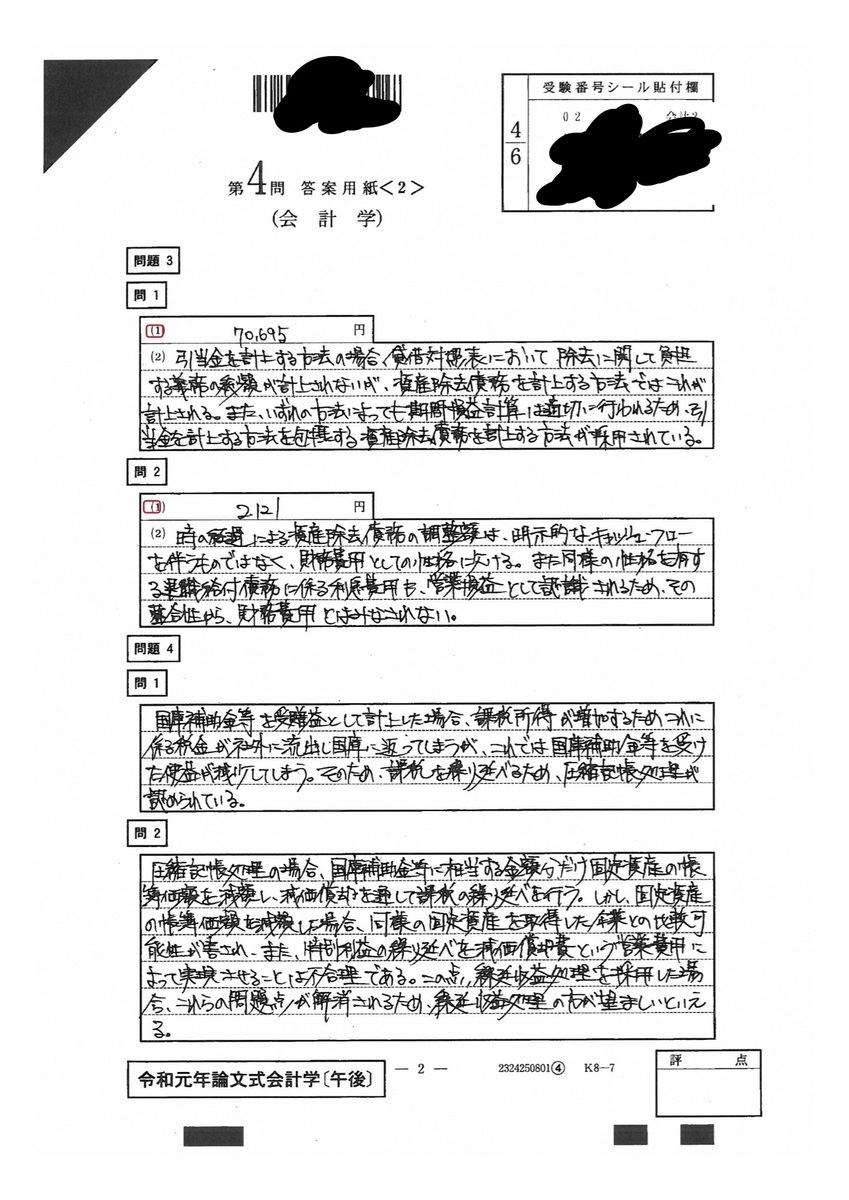 受験番号シール貼付欄
4/6
02
会計2
第4問 答案用紙<2>
(会計学)
問題 3
問 1
(1) 70,695 円
(2) 引当金を計上する方法の場合、貸借対照表において除去に関して負担
する義務の総額が計上されないが、資産除去債務を計上する方法ではこれが
計上される。また、いずれの方法によっても期間損益計算は適切に行われるため、引
当金を計上する方法を包摂する資産除去債務を計上する方法が採用されている。
問 2
(1) 2,121 円
(2) 時の経過による資産除去債務の調整額は、明示的なキャッシュ・フロー
を伴うものではなく、財務費用としての性格に欠ける。また同様の性格を有す
る退職給付債務に係る利息費用も、営業損益として認識されるため、その
整合性から、財務費用とはみなされない。
問題 4
問 1
国庫補助金等を受贈益として計上した場合、課税所得が増加するためこれに
係る税金が社外に流出し国庫に返ってしまうが、これでは国庫補助金等を受け
た便益が減少してしまう。そのため、課税を繰り延べるため、圧縮記帳処理が
認められている。
問 2
圧縮記帳処理の場合、国庫補助金等に相当する金額分だけ固定資産の帳
簿価額を減額し、減価償却を通して課税の繰り延べを行う。しかし、固定資産
の帳簿価額を減額した場合、同様の固定資産を取得した企業との比較可
能性が害され、また、特別利益の繰り延べを減価償却費という営業費用に
よって実現させることは不合理である。この点、繰延収益処理を採用した場
合、これらの問題点が解消されるため、繰延収益処理の方が望ましいといえ
る。
令和元年論文式会計学〔午後〕
— 2 —
2324250801④ K8-7
評 点